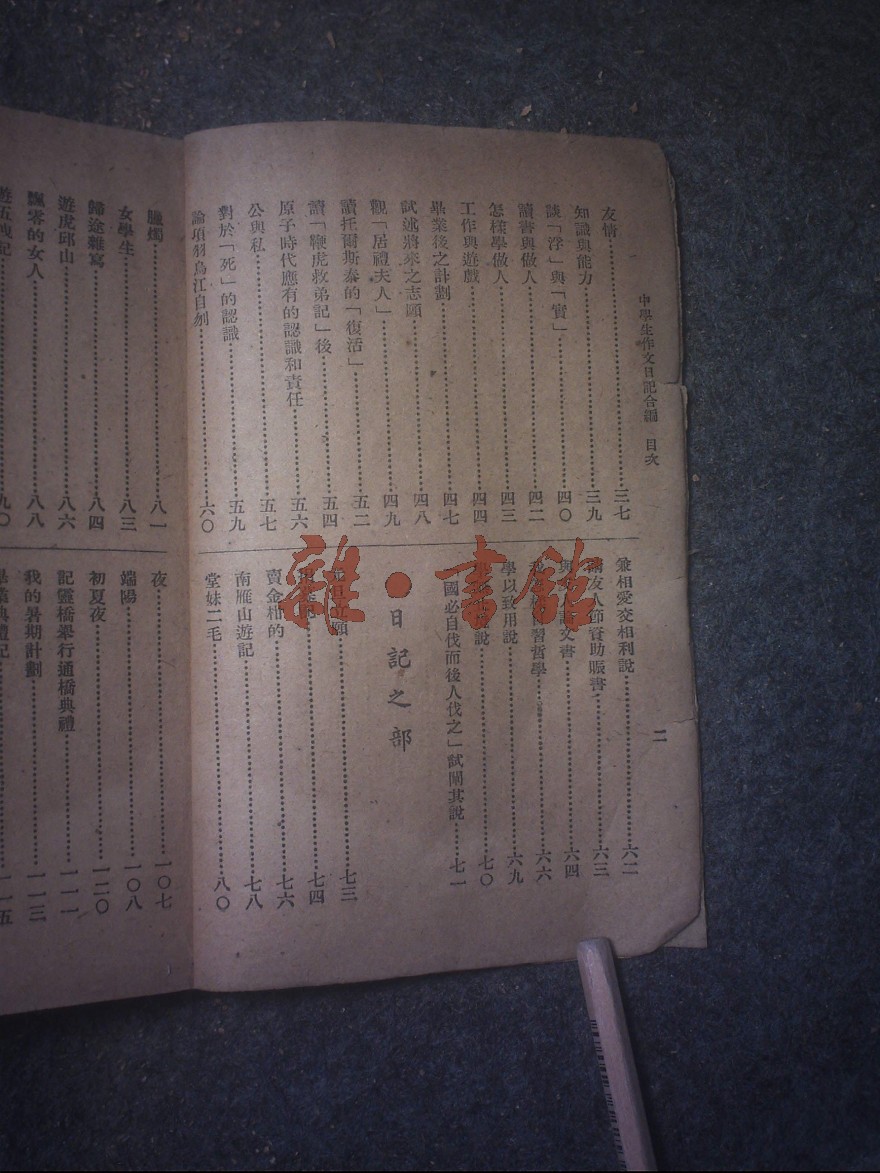 中學生作文日記合編　目次
二
友情⋯⋯三七
知識與能力⋯⋯三九
談「浮」與「實」⋯⋯四〇
讀書與做人⋯⋯四二
怎樣學做人⋯⋯四三
工作與遊戲⋯⋯四四
畢業後之計劃⋯⋯四七
試述將來之志願⋯⋯四八
觀「居禮夫人」⋯⋯四九
讀托爾斯泰的「復活」⋯⋯五二
讀「鞭虎救弟記」後⋯⋯五四
原子時代應有的認識和責任⋯⋯五六
公與私⋯⋯五七
對於「死」的認識⋯⋯五九
論項羽烏江自刎⋯⋯六〇
兼相愛交相利說⋯⋯六二
友人節資助賑書⋯⋯六三
論文書⋯⋯六四
習哲學⋯⋯六六
學以致用說⋯⋯六九
說⋯⋯七〇
「國必自伐而後人伐之」試闡其說⋯⋯七一
日記之部
願⋯⋯七三
⋯⋯七四
賣金柑的⋯⋯七六
南雁山遊記⋯⋯七八
堂妹二毛⋯⋯八〇
雜·書館
臘燭⋯⋯八一
女學生⋯⋯八三
歸途雜寫⋯⋯八四
遊虎邱山⋯⋯八六
飄零的女人⋯⋯八八
遊五洩記⋯⋯九〇
夜⋯⋯一〇七
端陽⋯⋯一〇八
初夏夜⋯⋯一二〇
記靈橋舉行通橋典禮⋯⋯一一一
我的暑期計劃⋯⋯一一三
畢業典禮記⋯⋯一一五